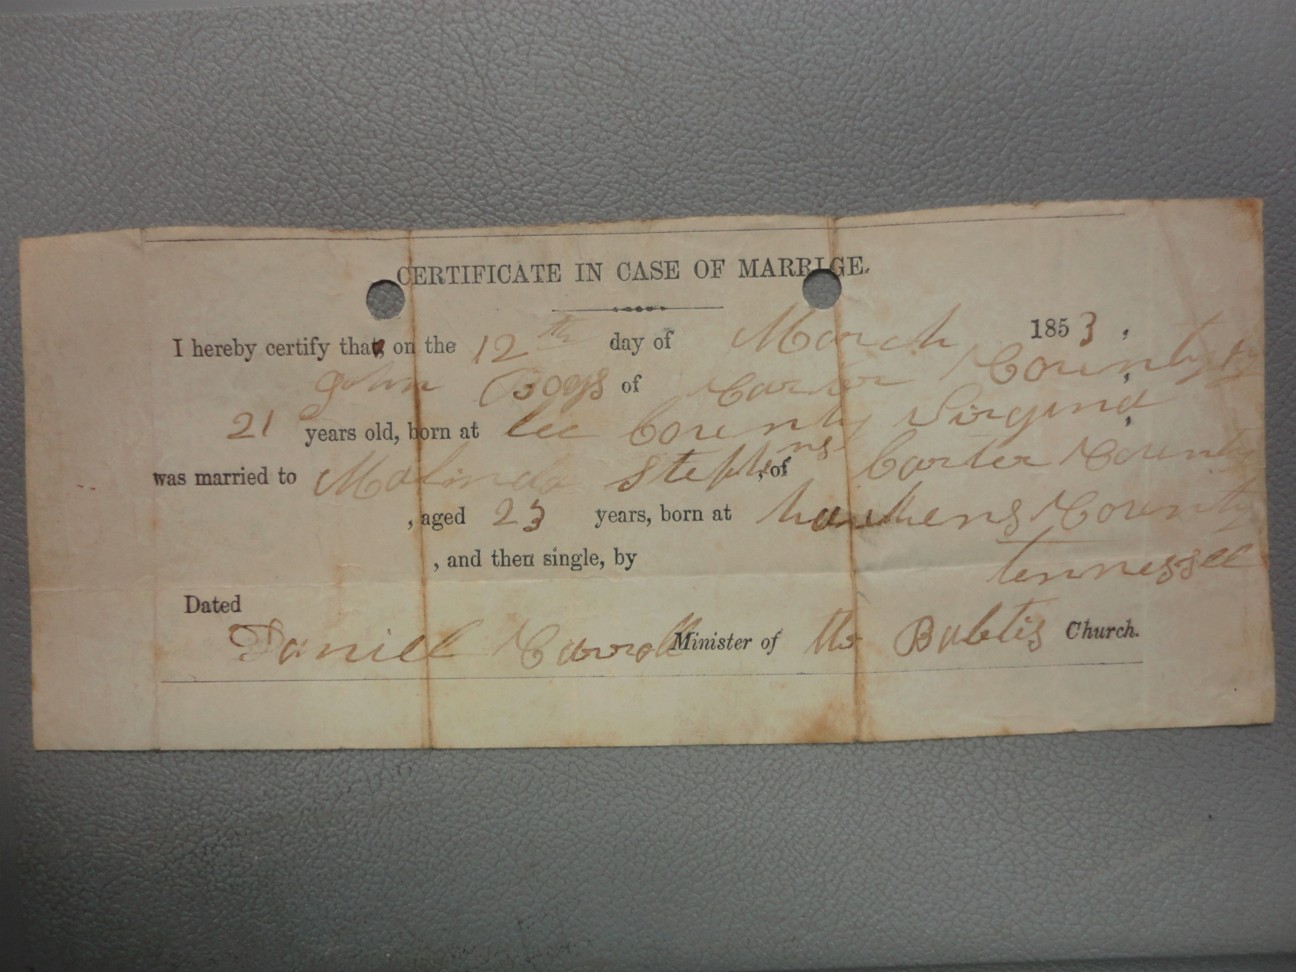 CERTIFICATE IN CASE OF MARRIGE.
I hereby certify that, on the 12th day of March 1853,
John Bogs of Carter County Ky,
21 years old, born at lee County Virgina,
was married to Malinda Stephens, of Carter County
, aged 23 years, born at hawkens County
tennessee
, and then single, by
Dated
Daniell Carroll Minister of the Babtis Church.